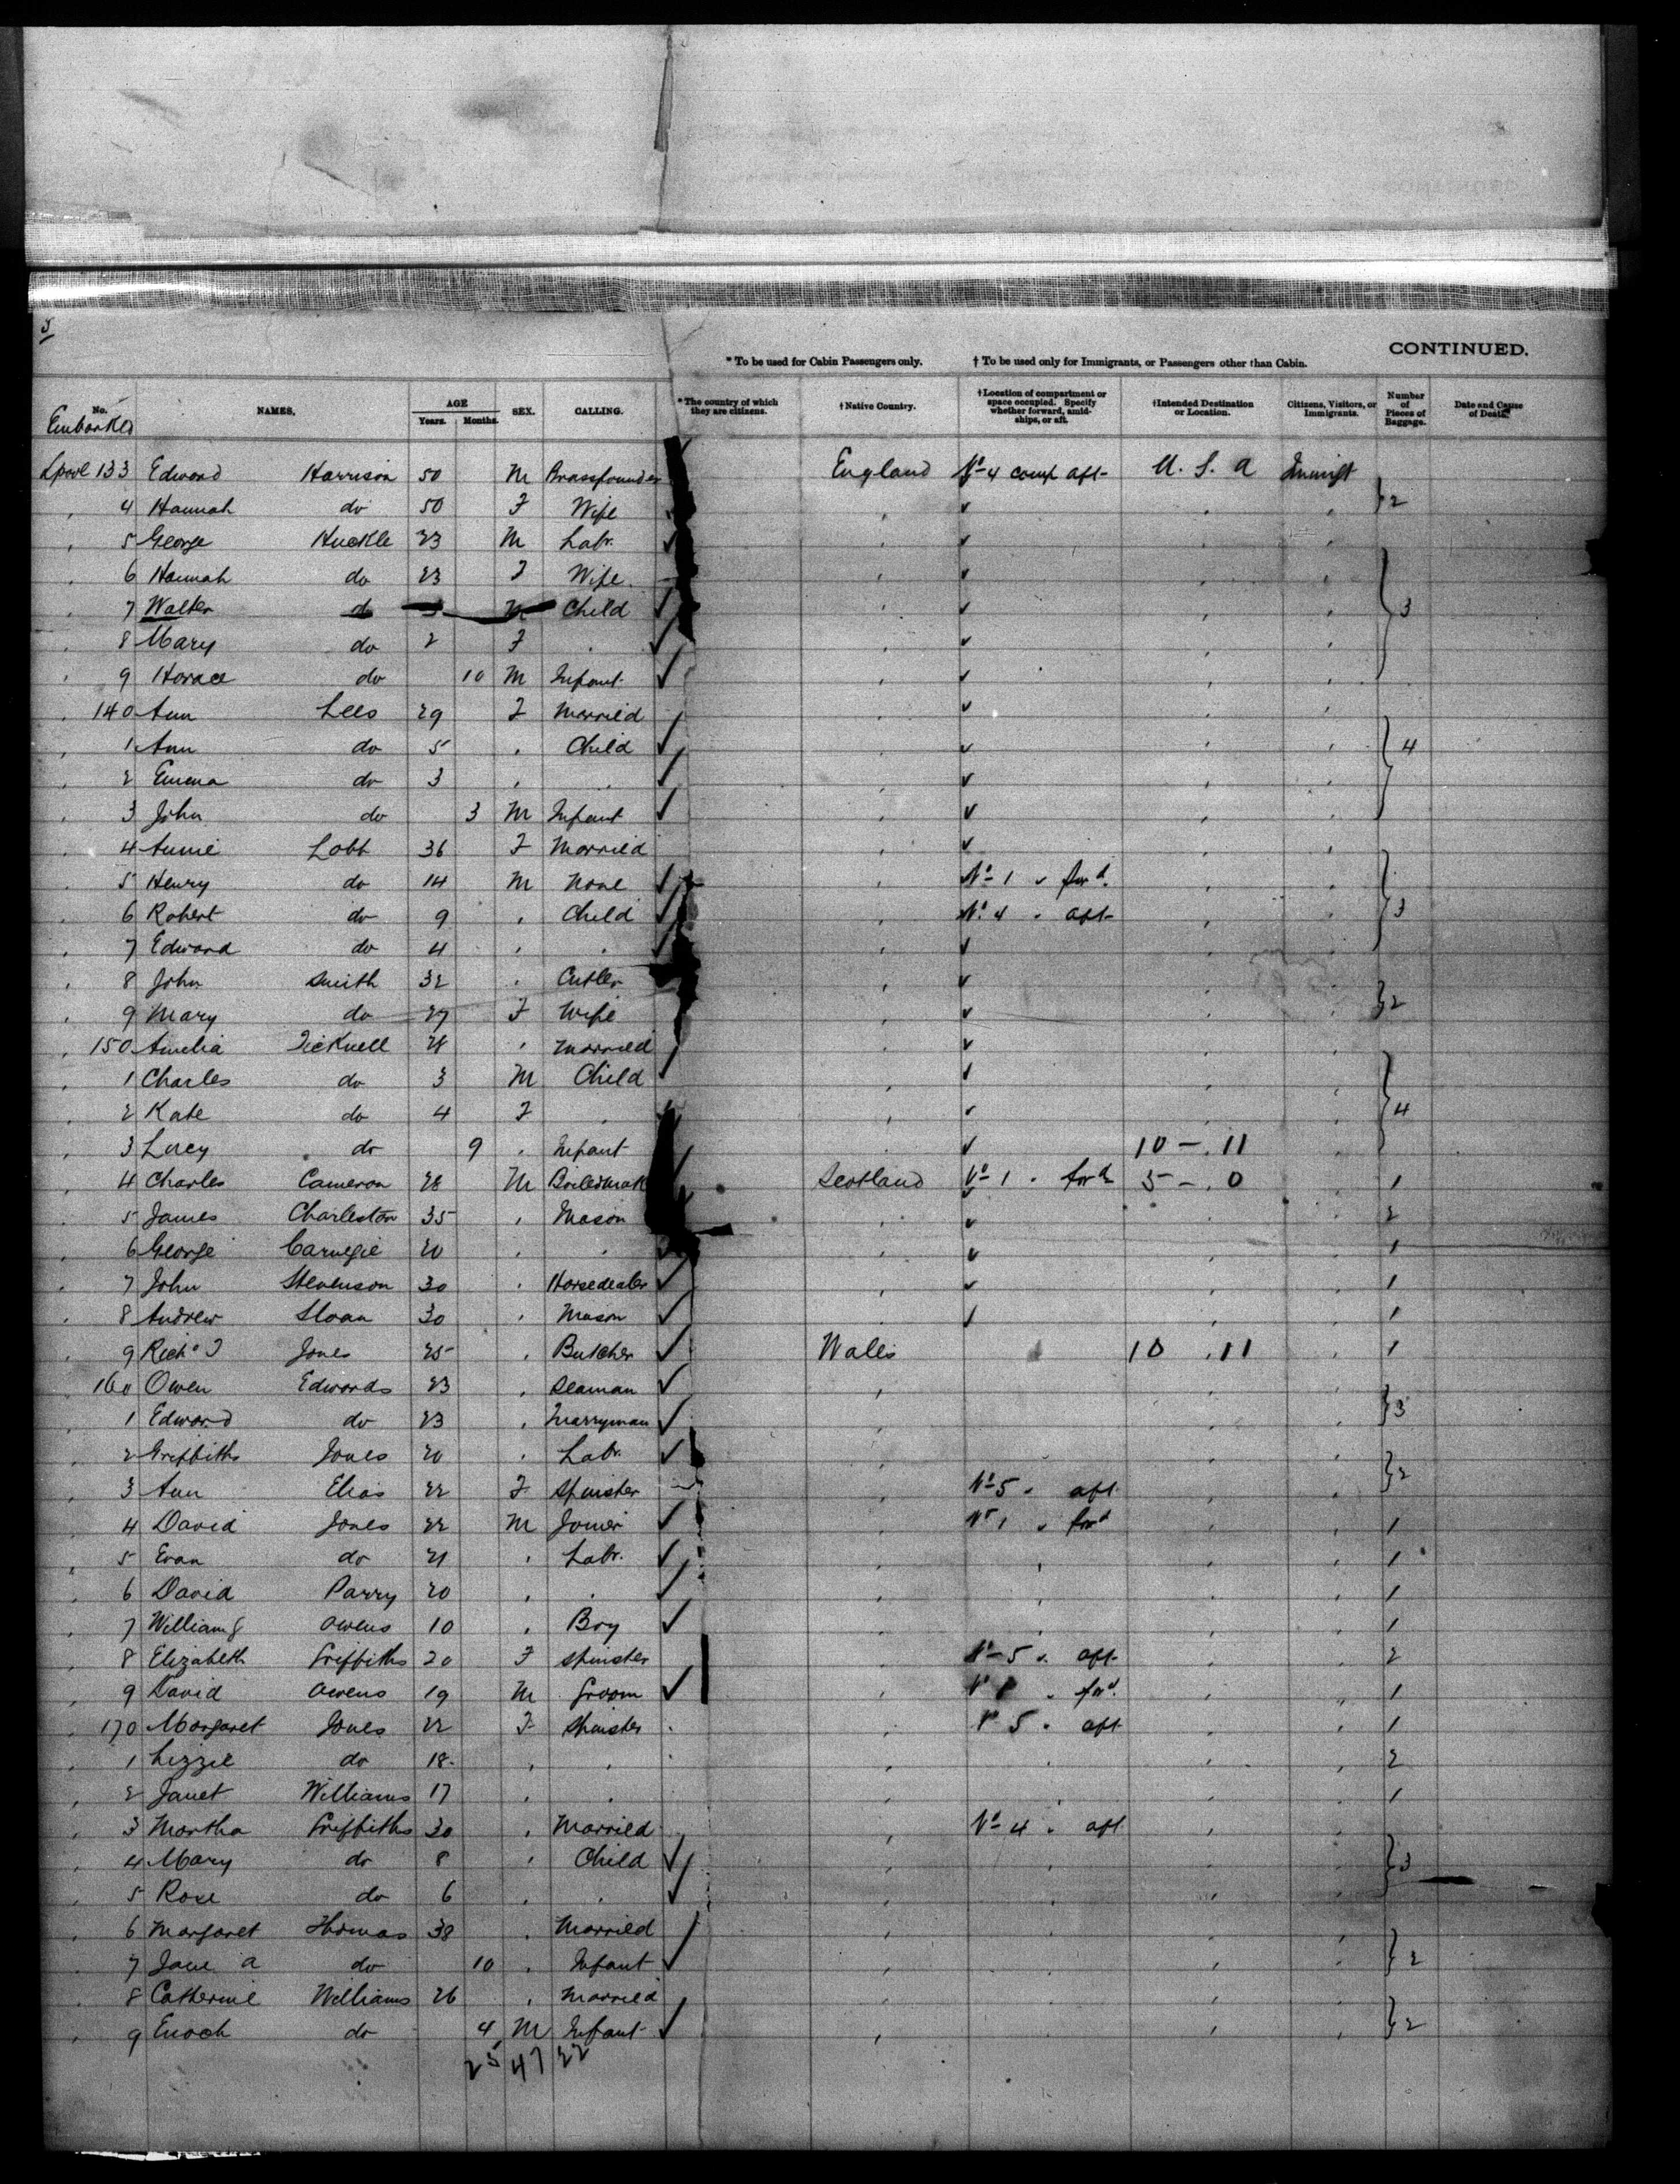 5
CONTINUED.
* To be used for Cabin Passengers only. † To be used only for Immigrants, or Passengers other than Cabin.
No. NAMES. AGE Years. Months. SEX. CALLING. * The country of which they are citizens. † Native Country. † Location of compartment or space occupied. Specify whether forward, amidships, or aft. † Intended Destination or Location. Citizens, Visitors, or Immigrants. Number of Pieces of Baggage. Date and Cause of Death.
Embarked
Lpool 133 Edward Harrison 50 M Brassfounder England No 4 comp aft U. S. A Immigt
4 Hannah do 50 F Wife 2
5 George Huckle 23 M Labr.
6 Hannah do 23 F Wife
7 Walter do M Child 3
8 Mary do 2 F
9 Horace do 10 M Infant
140 Ann Lees 29 F Married
1 Ann do 5 Child 4
2 Emma do 3
3 John do 3 M Infant
4 Annie Lobb 36 F Married
5 Henry do 14 M None No 1 ford
6 Robert do 9 Child No 4 aft 3
7 Edward do 4
8 John Smith 32 Cutler
9 Mary do 27 F Wife 2
150 Amelia Ticknell Married
1 Charles do 3 M Child
2 Kate do 4 F 4
3 Lucy do 9 Infant 10 - 11
4 Charles Cameron 28 M Boilermak Scotland No 1 ford 5 - 0 1
5 James Charleston 35 Mason 2
6 George Carnegie 20 1
7 John Stevenson 30 Horsedealer 1
8 Andrew Sloan 30 Mason 1
9 Richd J Jones 25 Butcher Wales 10 11 1
160 Owen Edwards 23 Seaman
1 Edward do 23 Quarryman 3
2 Griffiths Jones 20 Labr.
3 Ann Elias 22 F Spinster No 5 aft 2
4 David Jones 22 M Joiner No 1 ford 1
5 Evan do 21 Labr. 1
6 David Parry 20 1
7 William Owens 10 Boy 1
8 Elizabeth Griffiths 20 F Spinster No 5 aft 2
9 David Owens 19 M Groom ford 1
170 Margaret Jones 22 F Spinster 5 aft 1
1 Lizzie do 18 2
2 Janet Williams 17 1
3 Martha Griffiths 30 Married No 4 aft
4 Mary do 8 Child 3
5 Rose do 6
6 Margaret Thomas 38 Married
7 Jane A do 10 Infant 2
8 Catherine Williams 26 Married
9 Enoch do 4 M Infant 2
25 47 22